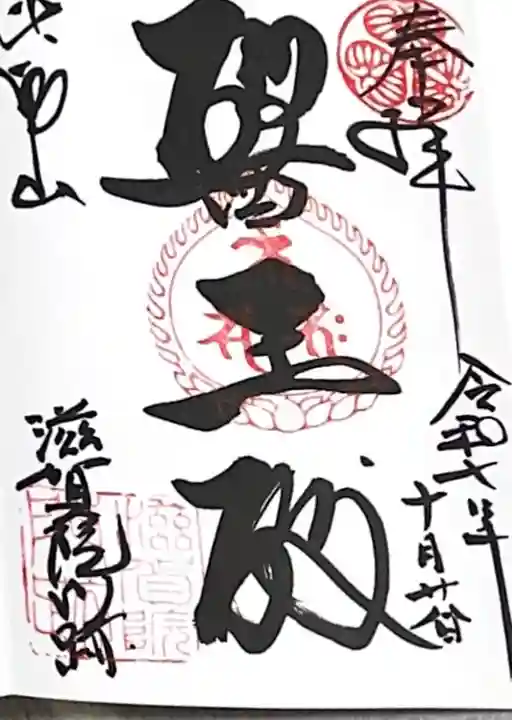 奉拝
令和七年
十月廿日
醫王殿
比叡山
滋賀院門跡